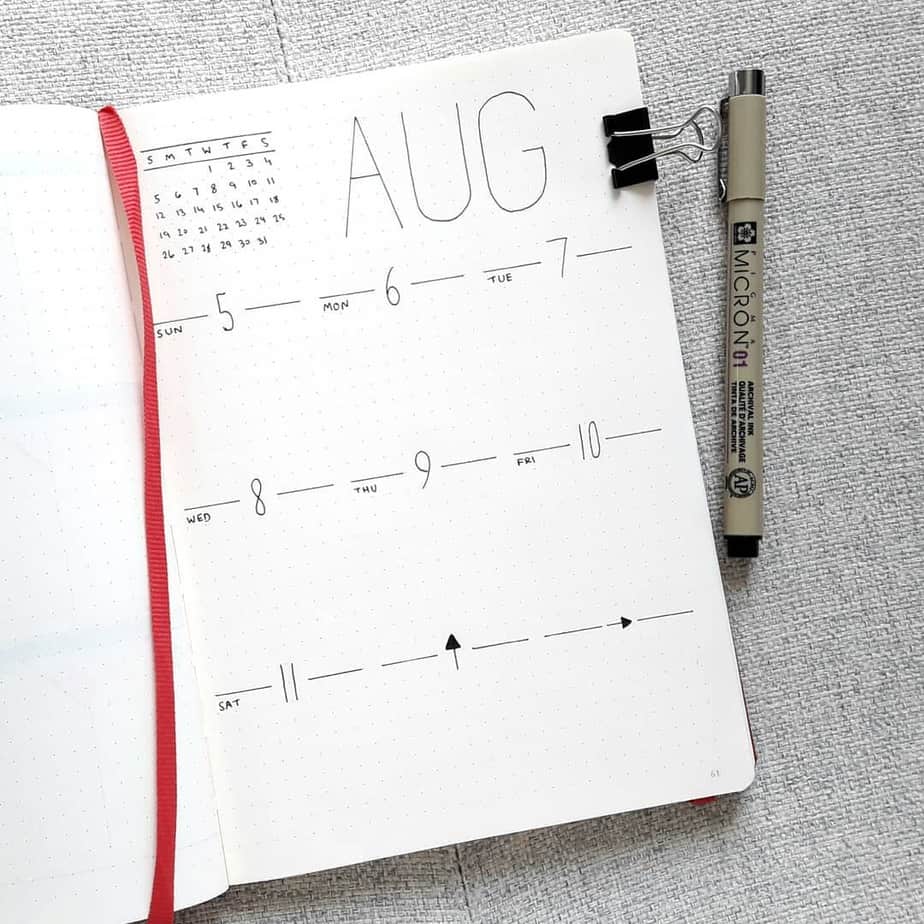 AUG
S M T W T F S
1 2 3 4
5 6 7 8 9 10 11
12 13 14 15 16 17 18
19 20 21 22 23 24 25
26 27 28 29 30 31
SUN 5
MON 6
TUE 7
WED 8
THU 9
FRI 10
SAT 11
61
PIGMA
MICRON 01
ARCHIVAL INK
QUALITÉ D'ARCHIVAGE
TINTA DE ARCHIVE
AP